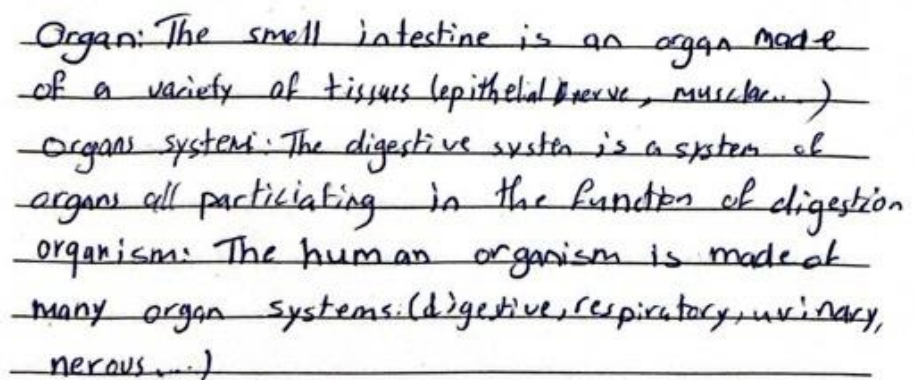 Organ: The smell intestine is an organ made
of a variety of tissues (epithelial nerve, musclar...)
organs system: The digestive systen is a system of
organs all particiating in the function of digestion
organism: The human organism is made of
many organ systems.(digestive, respiratory, urinary,
nerous....)